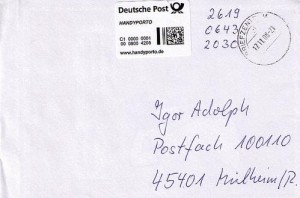 Deutsche Post
HANDYPORTO
C1 0000 0001
00 0800 4206
www.handyporto.de
2619
0643
2030
BRIEFZENTRUM
17.11.08-20
Igor Adolph
Postfach 100110
45401 Mülheim/R.